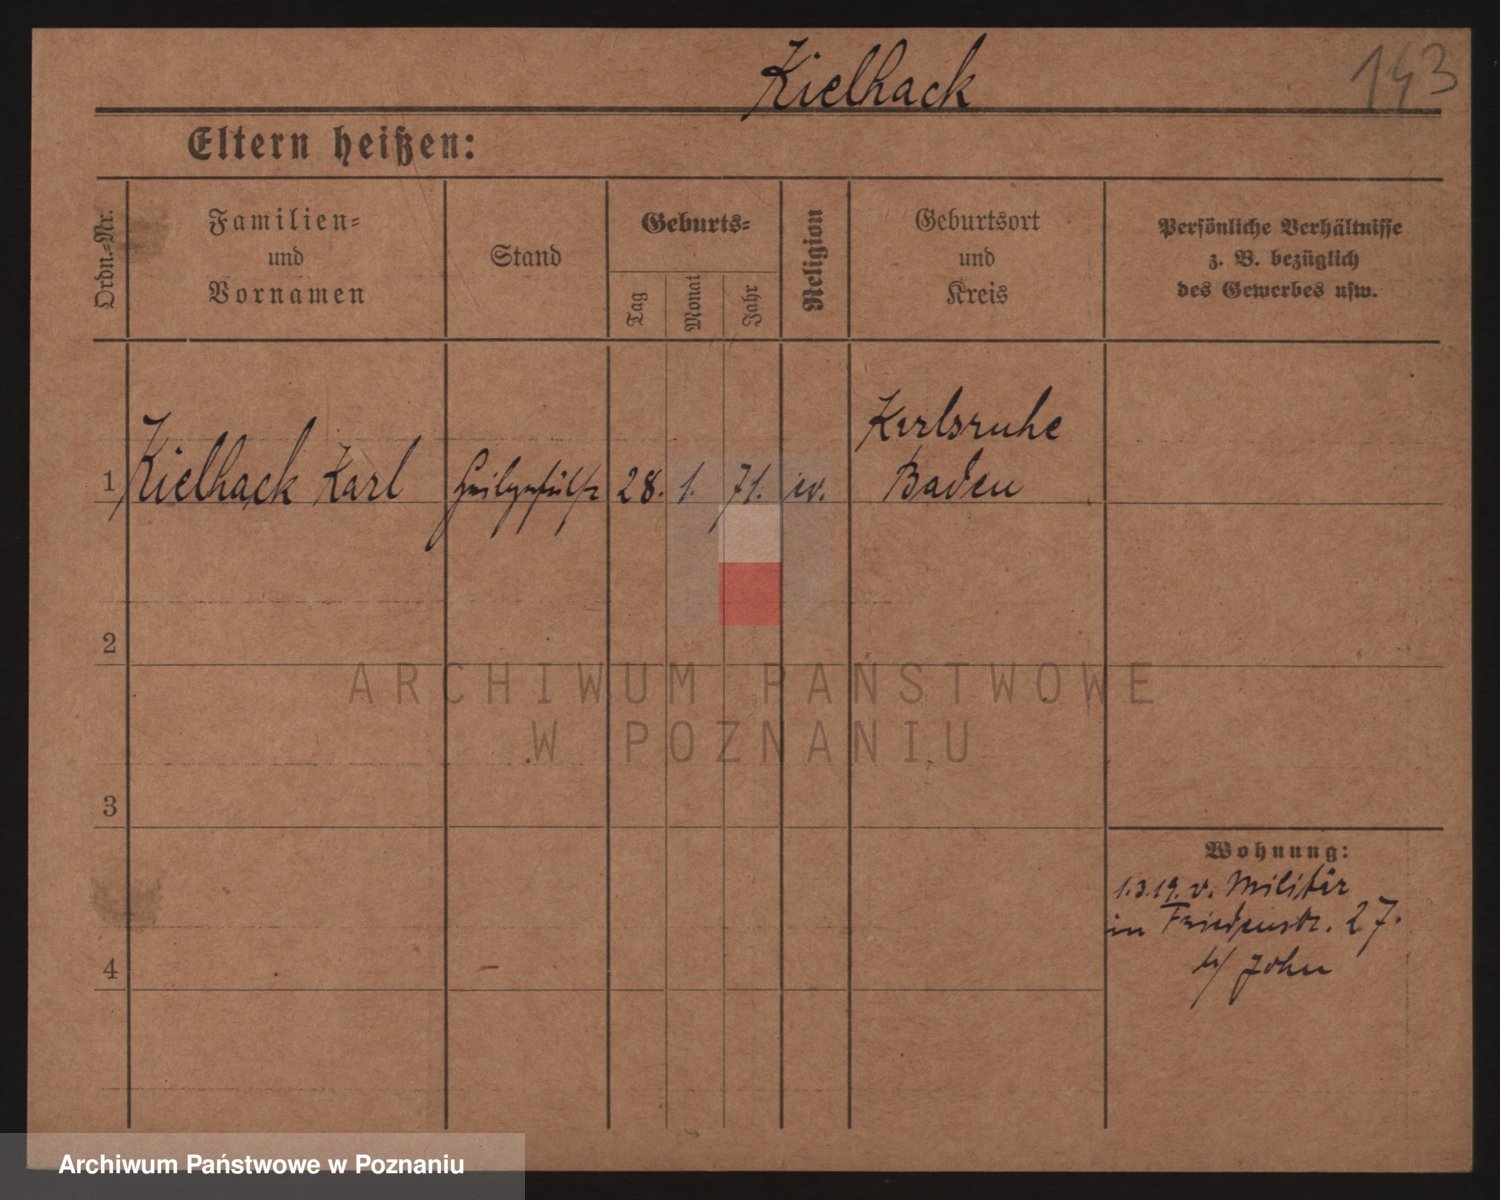 Kielhack
143
Eltern heißen:
Ordn.-Nr.
Familien-
und
Vornamen
Stand
Geburts-
Tag
Monat
Jahr
Religion
Geburtsort
und
Kreis
Persönliche Verhältnisse
z. B. bezüglich
des Gewerbes usw.
1
Kielhack Karl
28.
1.
71.
ev.
Karlsruhe
Baden
2
3
4
ARCHIWUM PAŃSTWOWE
W POZNANIU
Wohnung:
1.3.19. v. Militär
in Friedenstr. 27.
b/ John
Archiwum Państwowe w Poznaniu